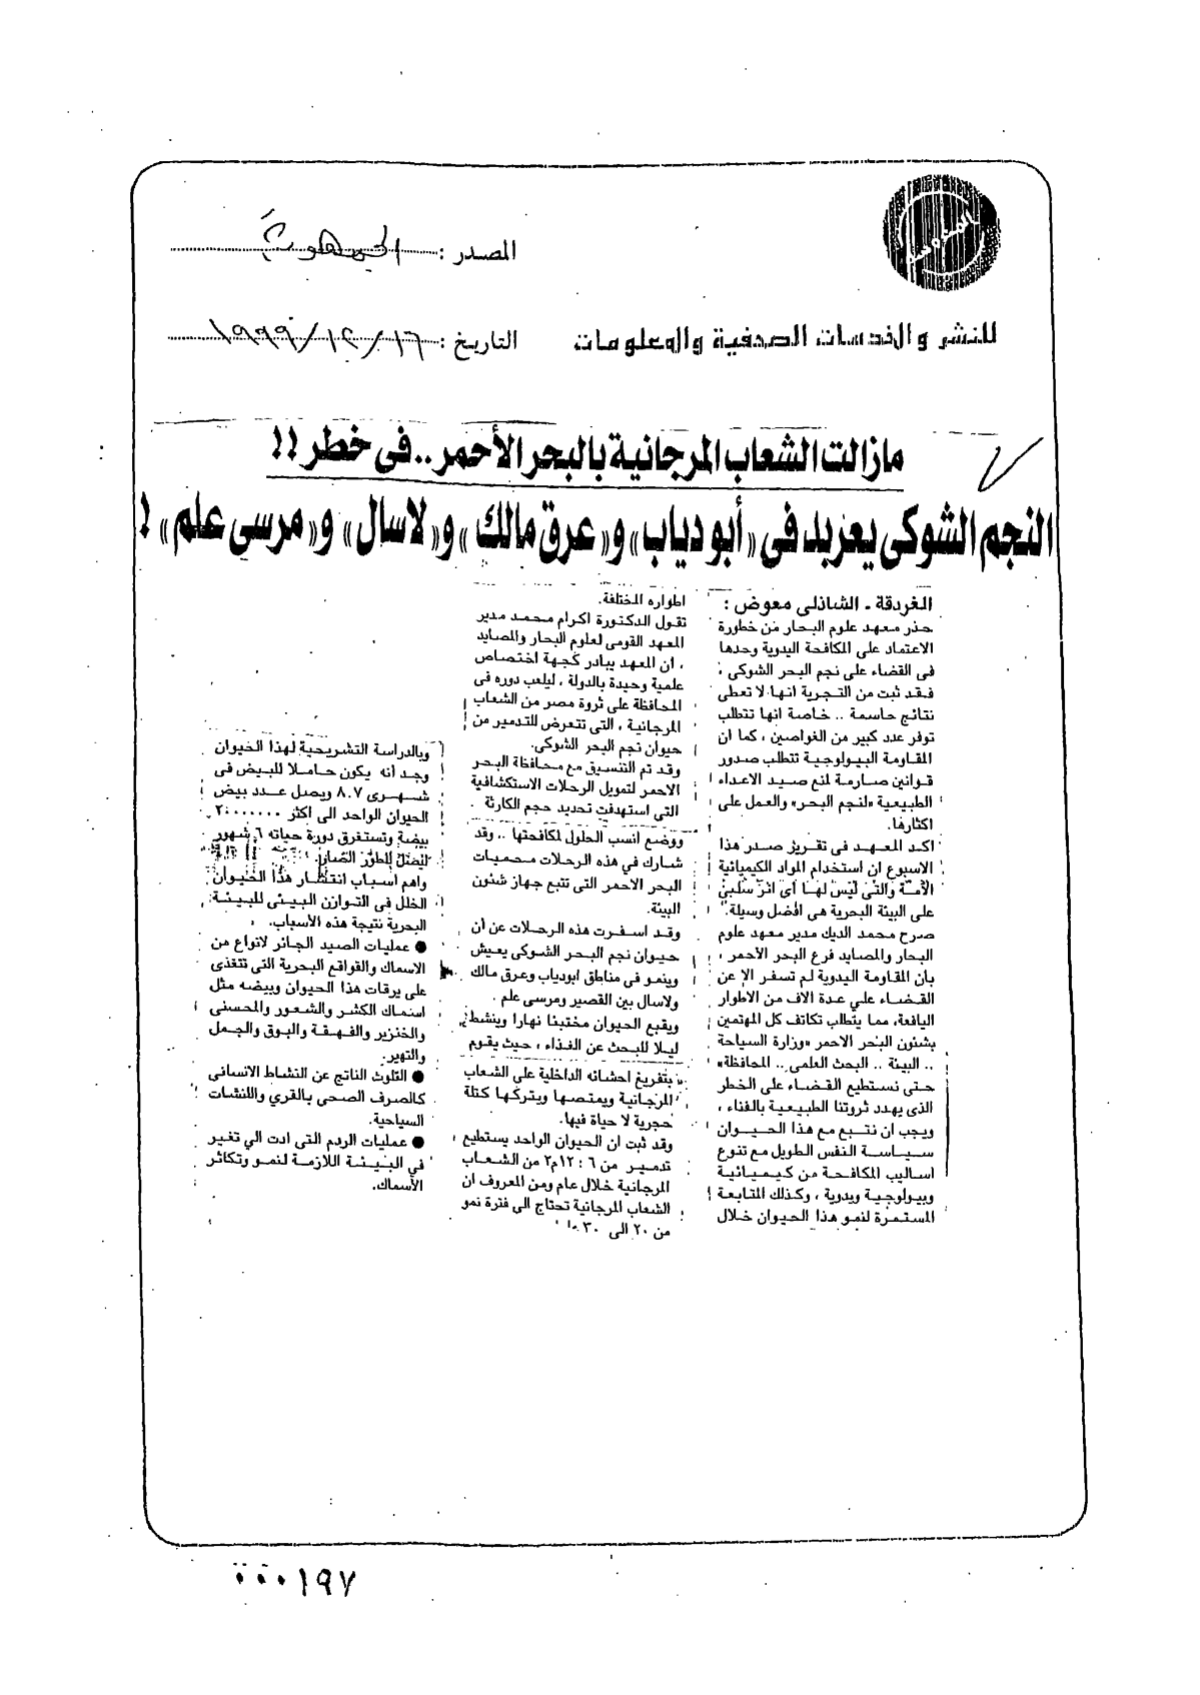 المصدر : الجمهورية
للنشر والخدمات الصحفية والمعلومات
التاريخ : ١٩٩٩/١٢/١٦
مازالت الشعاب المرجانية بالبحر الأحمر.. فى خطر !!
النجم الشوكى يعربد فى «أبو دياب» و«عرق مالك» و«لاسال» و«مرسى علم» !
الغردقة ـ الشاذلى معوض :
حذر معهد علوم البحار من خطورة
الاعتماد على المكافحة اليدوية وحدها
فى القضاء على نجم البحر الشوكى ،
فقد ثبت من التجربة انها لا تعطى
نتائج حاسمة .. خاصة انها تتطلب
توفر عدد كبير من الغواصين ، كما ان
المقاومة البيولوجية تتطلب صدور
قوانين صارمة لمنع صيد الاعداء
الطبيعية «لنجم البحر» والعمل على
اكثارها.
اكد المعهد فى تقرير صدر هذا
الاسبوع ان استخدام المواد الكيميائية
الآمنة والتى ليس لها أى اثر سلبى
على البيئة البحرية هى افضل وسيلة.
صرح محمد الديك مدير معهد علوم
البحار والمصايد فرع البحر الأحمر ،
بان المقاومة اليدوية لم تسفر الإ عن
القضاء علي عدة الاف من الأطوار
اليافعة، مما يتطلب تكاتف كل المهتمين
بشئون البحر الاحمر «وزارة السياحة
.. البيئة .. البحث العلمى .. المحافظة»
حتى نستطيع القضاء على الخطر
الذى يهدد ثروتنا الطبيعية بالفناء ،
ويجب ان نتبع مع هذا الحيوان
سياسة النفس الطويل مع تنوع
اساليب المكافحة من كيميائية
وبيولوجية ويدوية ، وكذلك المتابعة
المستمرة لنمو هذا الحيوان خلال
اطواره المختلفة.
تقول الدكتورة اكرام محمد مدير
المعهد القومى لعلوم البحار والمصايد
، ان المعهد يبادر كجهة اختصاص
علمية وحيدة بالدولة ، ليلعب دوره فى
المحافظة على ثروة مصر من الشعاب
المرجانية ، التى تتعرض للتدمير من
حيوان نجم البحر الشوكى.
وقد تم التنسيق مع محافظة البحر
الاحمر لتمويل الرحلات الاستكشافية
التى استهدفت تحديد حجم الكارثة .
ووضع انسب الحلول لمكافحتها .. وقد
شارك في هذه الرحلات محميات
البحر الاحمر التى تتبع جهاز شئون
البيئة.
وقد اسفرت هذه الرحلات عن أن
حيوان نجم البحر الشوكى يعيش
وينمو فى مناطق ابودياب وعرق مالك
ولاسال بين القصير ومرسى علم .
ويقبع الحيوان مختبئا نهارا وينشط
ليلا للبحث عن الغذاء ، حيث يقوم
بتفريغ احشائه الداخلية على الشعاب
المرجانية ويمتصها ويتركها كتلة
حجرية لا حياة فيها.
وقد ثبت ان الحيوان الواحد يستطيع
تدمير من ٦ : ١٢م٢ من الشعاب
المرجانية خلال عام ومن المعروف ان
الشعاب المرجانية تحتاج الى فترة نمو
من ٢٠ الى ٣٠
وبالدراسة التشريحية لهذا الحيوان
وجد انه يكون حاملا للبيض فى
شهرى ٨،٧ ويصل عدد بيض
الحيوان الواحد الى اكثر
بيضة وتستغرق دورة حياته ٦ شهور
ليصل للطور الضار.
واهم اسباب انتشار هذا الحيوان
الخلل فى التوازن البيئى للبيئة
البحرية نتيجة هذه الأسباب.
● عمليات الصيد الجائر لانواع من
الاسماك والقواقع البحرية التى تتغذى
على يرقات هذا الحيوان وبيضه مثل
اسماك الكشر والشعور والمحسنى
والخنزير والفهقة والبوق والجمل
والنهير.
● التلوث الناتج عن النشاط الانسانى
كالصرف الصحي بالقري والنشات
السياحية.
● عمليات الردم التى ادت الي تغير
في البيئة اللازمة لنمو وتكاثر
الأسماك.
٠٠٠١٩٧